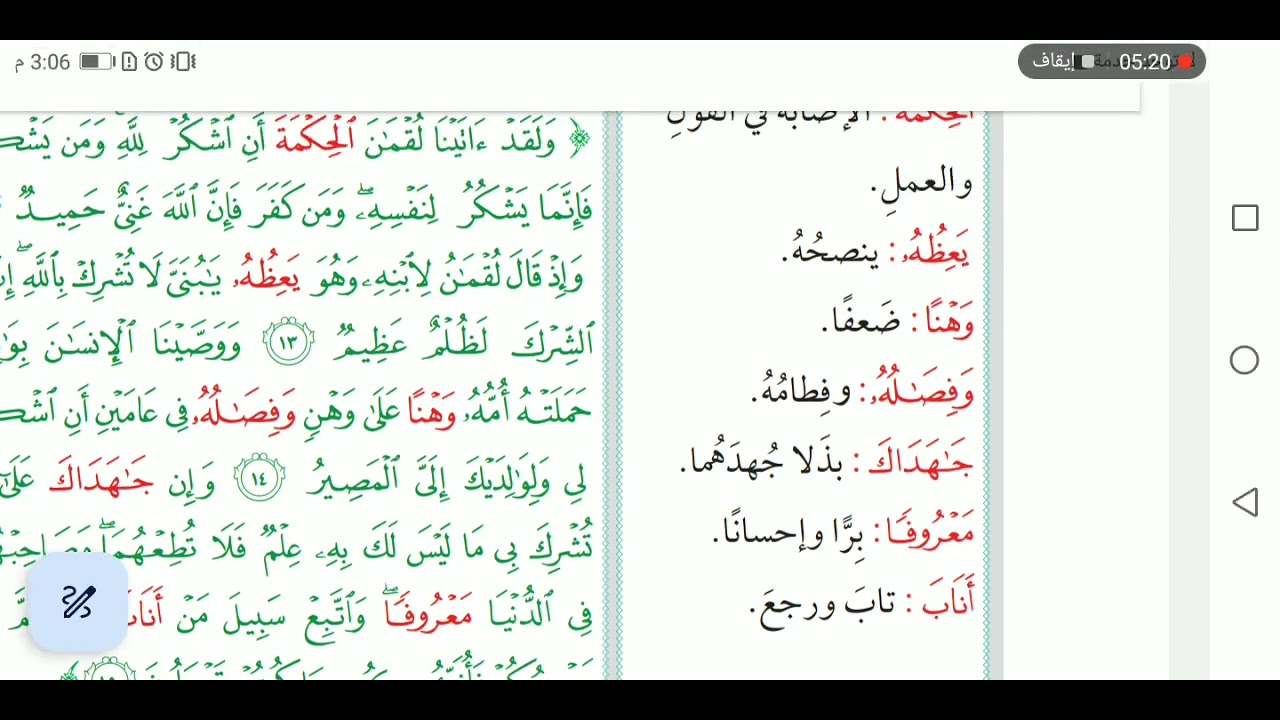 3:06 م
05:20 إيقاف
الحكمة: الإصابة في القولِ
والعملِ.
يَعِظُهُۥ: ينصحُهُ.
وَهْنًا: ضَعفًا.
وَفِصَٰلُهُۥ: وفِطامُهُ.
جَٰهَدَاكَ: بذَلا جُهدَهُما.
مَعْرُوفًا: بِرًّا وإحسانًا.
أَنَابَ: تابَ ورجعَ.
﴿ وَلَقَدْ ءَاتَيْنَا لُقْمَٰنَ ٱلْحِكْمَةَ أَنِ ٱشْكُرْ لِلَّهِ وَمَن يَشْكُ
فَإِنَّمَا يَشْكُرُ لِنَفْسِهِۦ وَمَن كَفَرَ فَإِنَّ ٱللَّهَ غَنِىٌّ حَمِيدٌ
وَإِذْ قَالَ لُقْمَٰنُ لِٱبْنِهِۦ وَهُوَ يَعِظُهُۥ يَٰبُنَىَّ لَا تُشْرِكْ بِٱللَّهِ إِ
ٱلشِّرْكَ لَظُلْمٌ عَظِيمٌ ١٣ وَوَصَّيْنَا ٱلْإِنسَٰنَ بِوَٰ
حَمَلَتْهُ أُمُّهُۥ وَهْنًا عَلَىٰ وَهْنٍ وَفِصَٰلُهُۥ فِى عَامَيْنِ أَنِ ٱشْكُ
لِى وَلِوَٰلِدَيْكَ إِلَىَّ ٱلْمَصِيرُ ١٤ وَإِن جَٰهَدَاكَ عَلَىٰٓ
تُشْرِكَ بِى مَا لَيْسَ لَكَ بِهِۦ عِلْمٌ فَلَا تُطِعْهُمَا وَصَاحِبْهُ
فِى ٱلدُّنْيَا مَعْرُوفًا وَٱتَّبِعْ سَبِيلَ مَنْ أَنَابَ